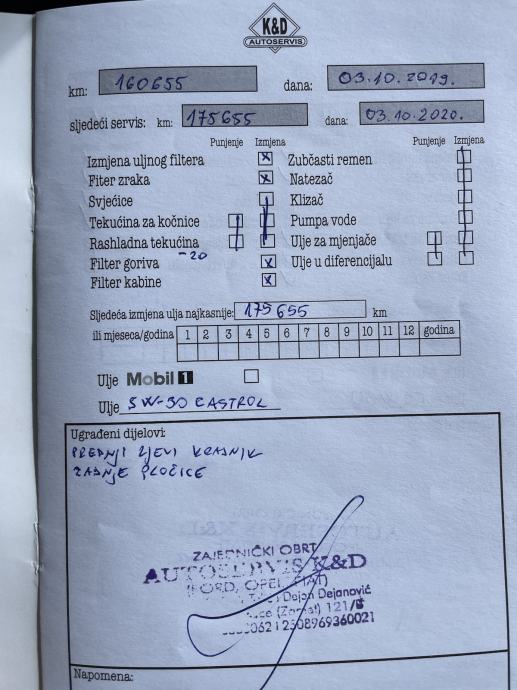 K&D
AUTOSERVIS
km: 160655 dana: 03.10.2019.
sljedeći servis: km: 175655 dana: 03.10.2020.
Punjenje Izmjena Punjenje Izmjena
Izmjena uljnog filtera x Zubčasti remen
Fiter zraka x Natezač
Svjećice Klizač
Tekućina za kočnice Pumpa vode
Rashladna tekućina Ulje za mjenjače
-20
Filter goriva x Ulje u diferencijalu
Filter kabine x
Sljedeća izmjena ulja najkasnije: 175655 km
ili mjeseca/godina 1 2 3 4 5 6 7 8 9 10 11 12 godina
Ulje Mobil 1
Ulje 5W-30 CASTROL
Ugrađeni dijelovi:
PREDNJI LJEVI KRAJNIK
ZADNJE PLOČICE
ZAJEDNIČKI OBRT
AUTOSERVIS K&D
(FORD, OPEL, FIAT)
Dejan Dejanović
121/
Napomena: